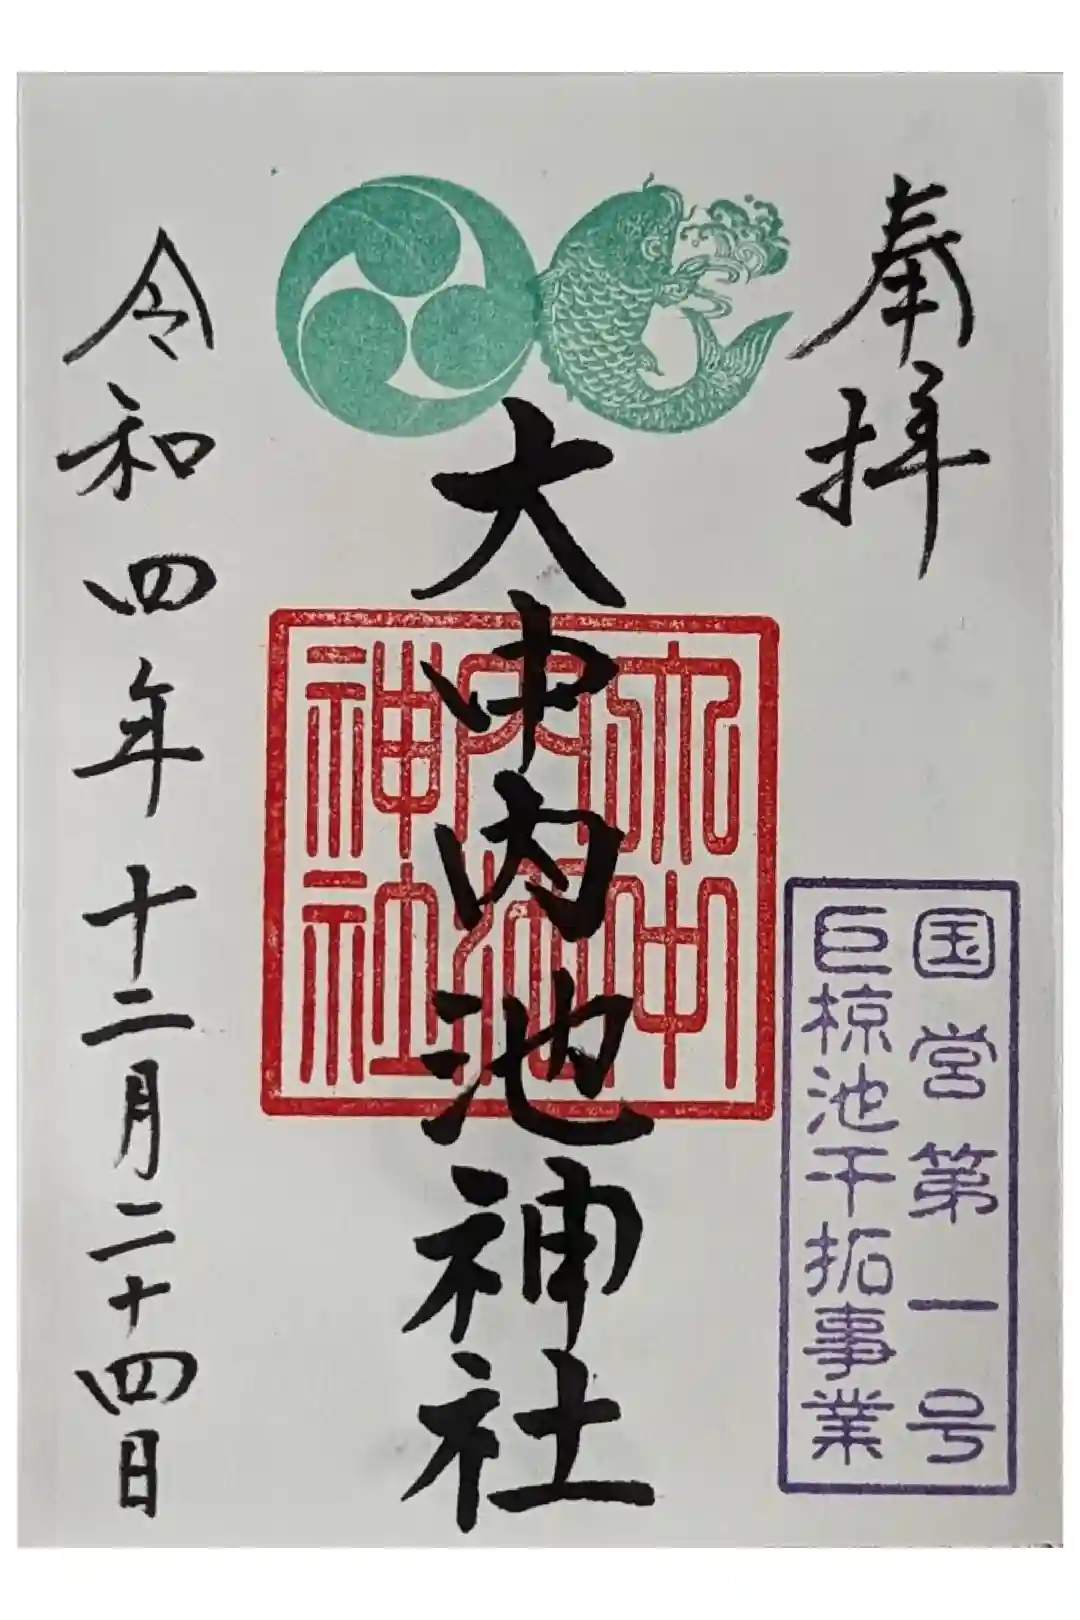 奉拝
国営第一号
巨椋池干拓事業
大中内池神社
大中
内池
神社
令和四年十二月二十四日